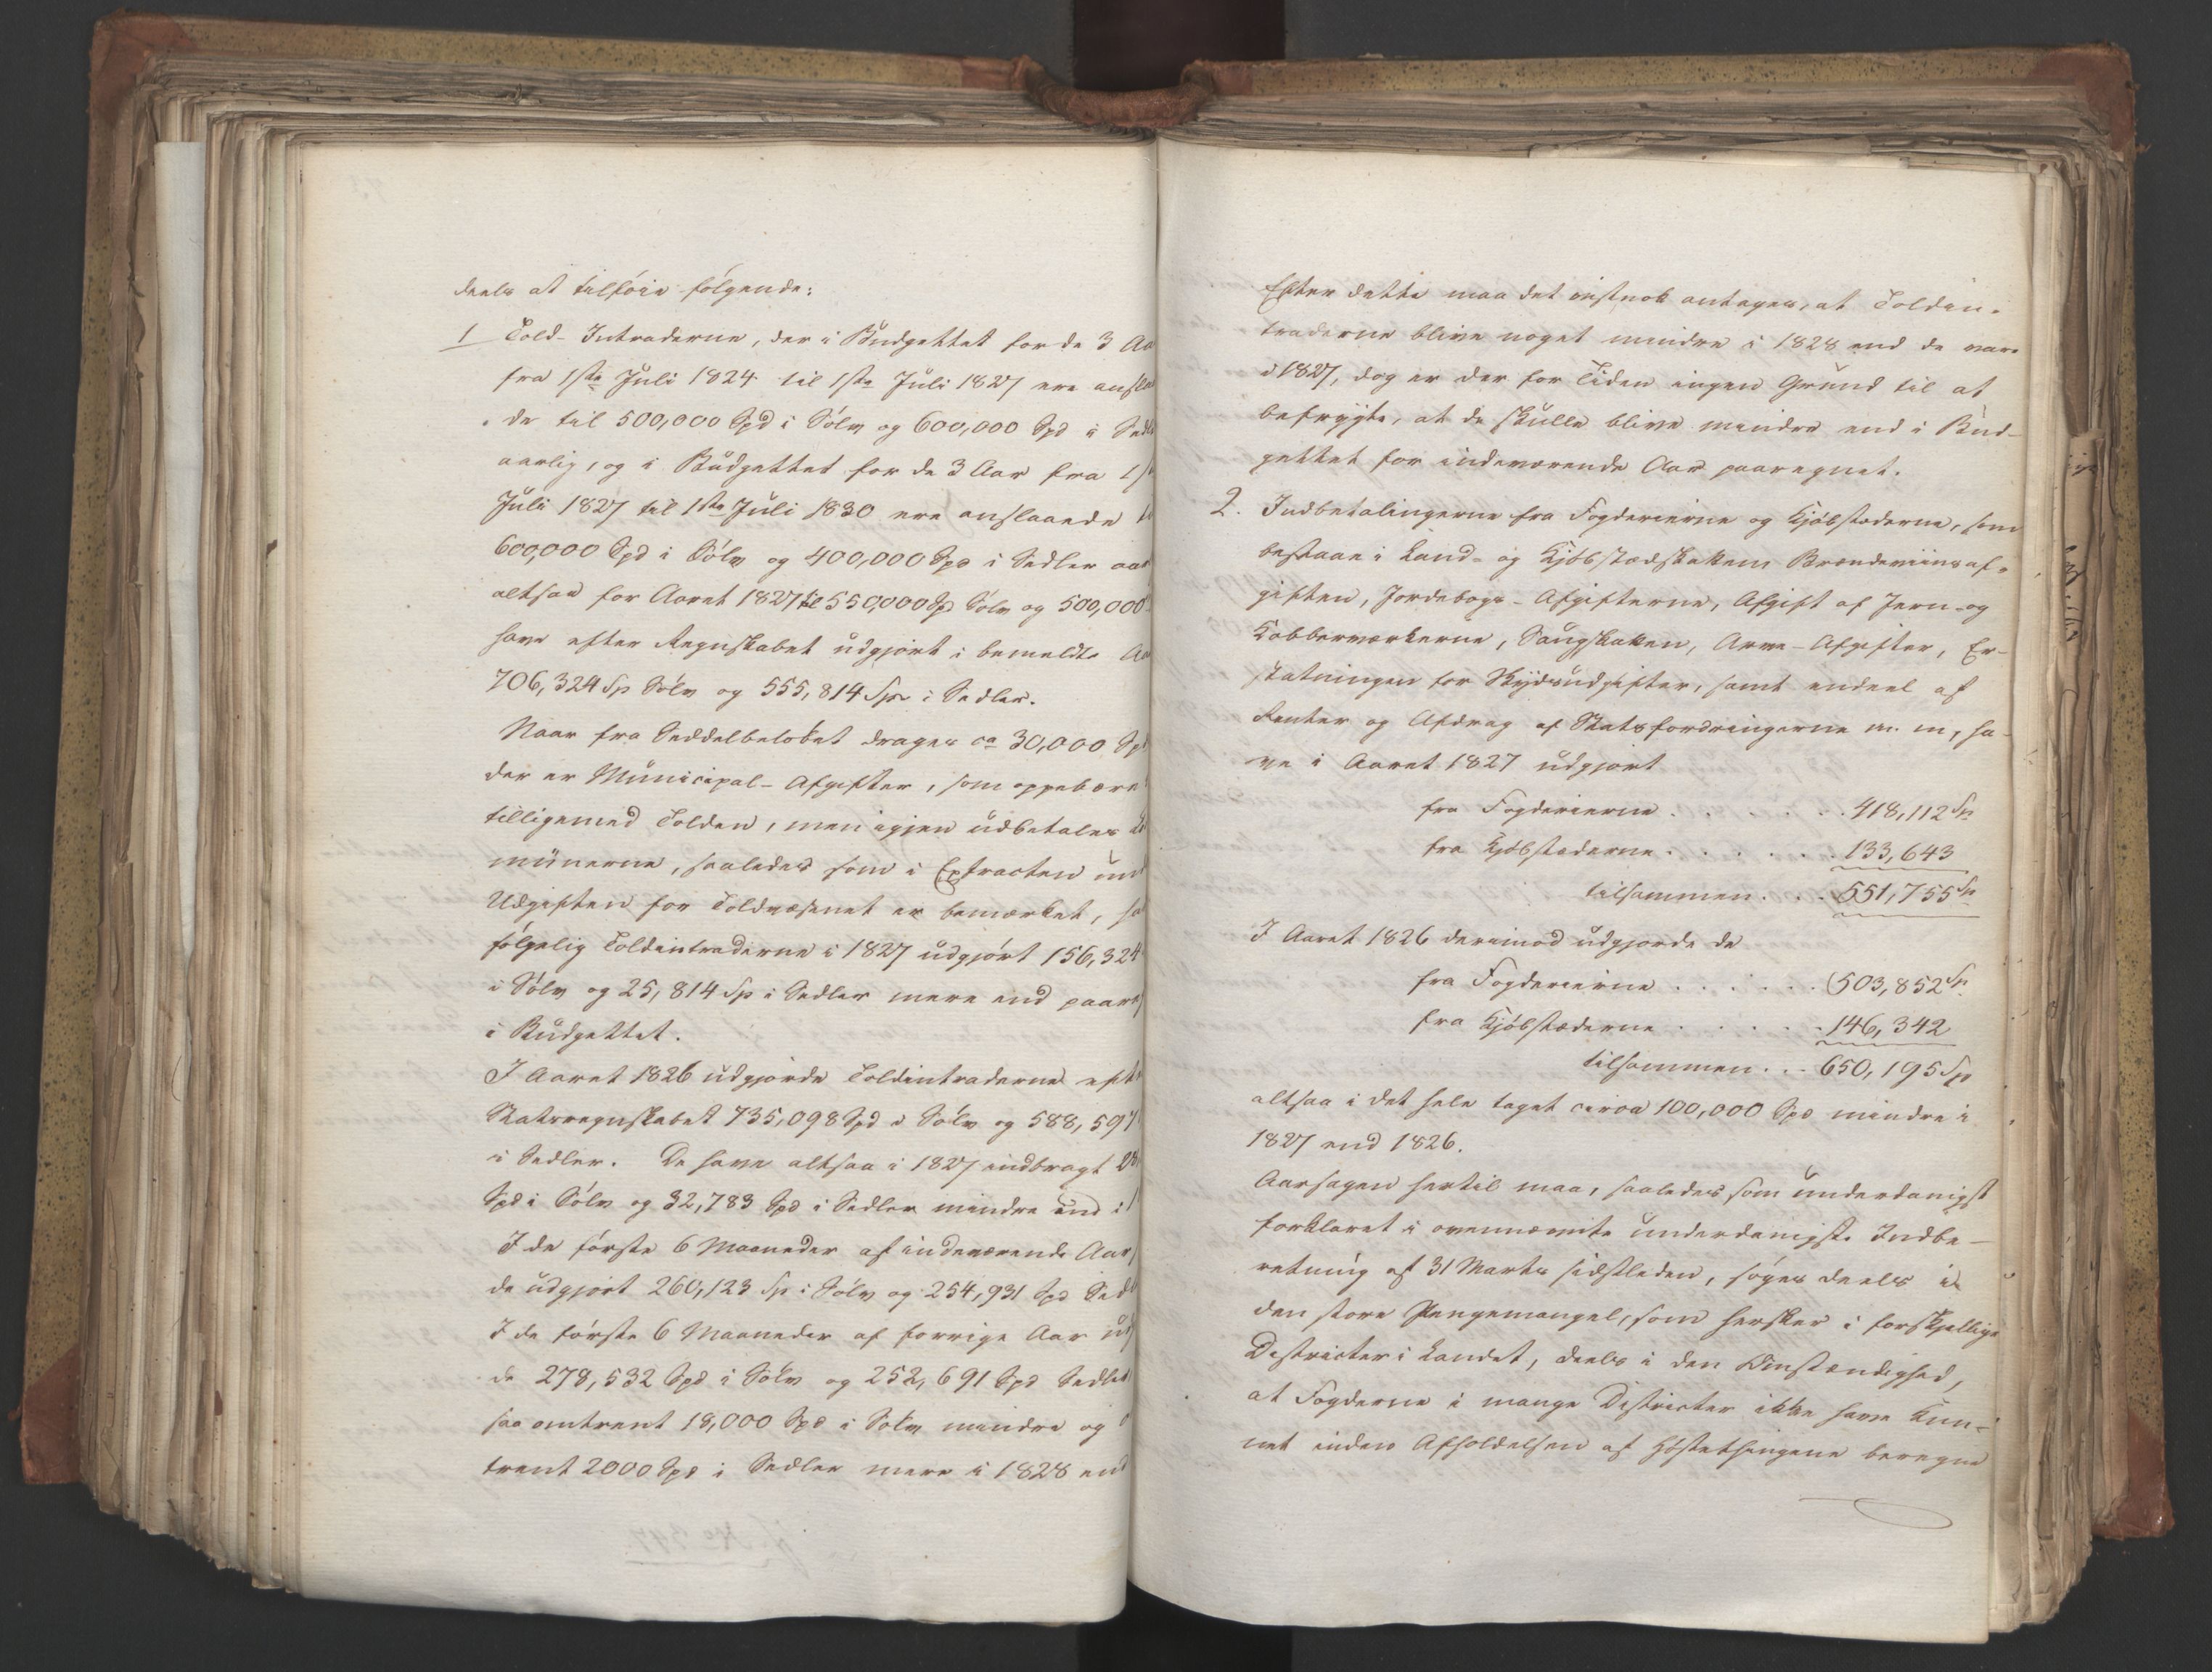 deels at tilføie følgende:
1 Told-Intraderne, der i Budgettet for de 3 Aa
fra 1ste Juli 1824 til 1ste Juli 1827 ere anslaa
de til 500,000 Spd i Sølv og 600,000 Spd i Sedl
aarlig, og i Budgettet for de 3 Aar fra 1st
Juli 1827 til 1ste Juli 1830 ere anslaaede ti
600,000 Spd i Sølv og 400,000 Spd i Sedler aar
altsaa for Aaret 1827 til 550,000 Sp Sølv og 500,000
have efter Regnskabet udgjort i bemeldte Aa
706,324 Sp Sølv og 555,814 Sp i Sedler.
Naar fra Seddelbeløbet drages ca 30,000 Sp
der er Municipal-Afgifter, som oppebære
tilligemed Tolden, men igjen udbetales Co
munerne, saaledes som i Extracten und
Udgiften for Toldvæsenet er bemærket, ha
følgelig Toldintraderne i 1827 udgjørt 156,324
i Sølv og 25,814 Sp i Sedler mere end paare
i Budgettet.
I Aaret 1826 udgjorde Toldintraderne efte
Statsregnskabet 735,098 Spd i Sølv og 588,597
i Sedler. De have altsaa i 1827 indbragt 28
Spd i Sølv og 32,783 Spd i Sedler mindre end i 1
I de første 6 Maaneder af indeværende Aar
de udgjort 260,123 Sp i Sølv og 254,931 Spd Sedl
I de første 6 Maaneder af forrige Aar udg
de 278,532 Spd i Sølv og 252,691 Spd Sedler
saa omtrent 18,000 Spd i Sølv mindre og o
trent 2000 Spd i Sedler mere i 1828 end
Efter dette maa det vistnok antages, at Toldin-
traderne blive noget mindre i 1828 end de vare
i 1827, dog er der for Tiden ingen Grund til at
befrygte, at de skulle blive mindre end i Bud-
gettet for indeværende Aar paaregnet.
2. Indbetalingerne fra Fogderierne og Kjøbstæderne, som
bestaae i Land- og Kjøbstædskatten Brændeviinsaf-
giften, Jordebogs-Afgifterne, Afgift af Jern- og
Kobberværkerne, Saugskatten, Arve-Afgifter, Er-
statningen for Skydsudgifter, samt endeel af
Renter og Afdrag af Statsfordringerne m. m, ha-
ve i Aaret 1827 udgjort
fra Fogderierne . . . . . . 418,112 Sp
fra Kjøbstæderne . . . . . . 133,643
tilsammen . . . 551,755 Sp
I Aaret 1826 derimod udgjorde de
fra Fogderierne . . . . . . 503,852 Sp
fra Kjøbstæderne . . . . . 146,342
tilsammen . . . 650,195 Sp
altsaa i det hele taget circa 100,000 Spd mindre i
1827 end 1826.
Aarsagen hertil maa, saaledes som underdanigst
forklaret i ovennævnte underdanigste Indbe-
retning af 31 Marts sidstleden, søges deels i
den store Pengemangel, som hersker i forskjellige
Districter i Landet, deels i den Omstændighed,
at Fogderne i mange Districter ikke have kun-
net inden Afholdelsen af Høstethingene beregne